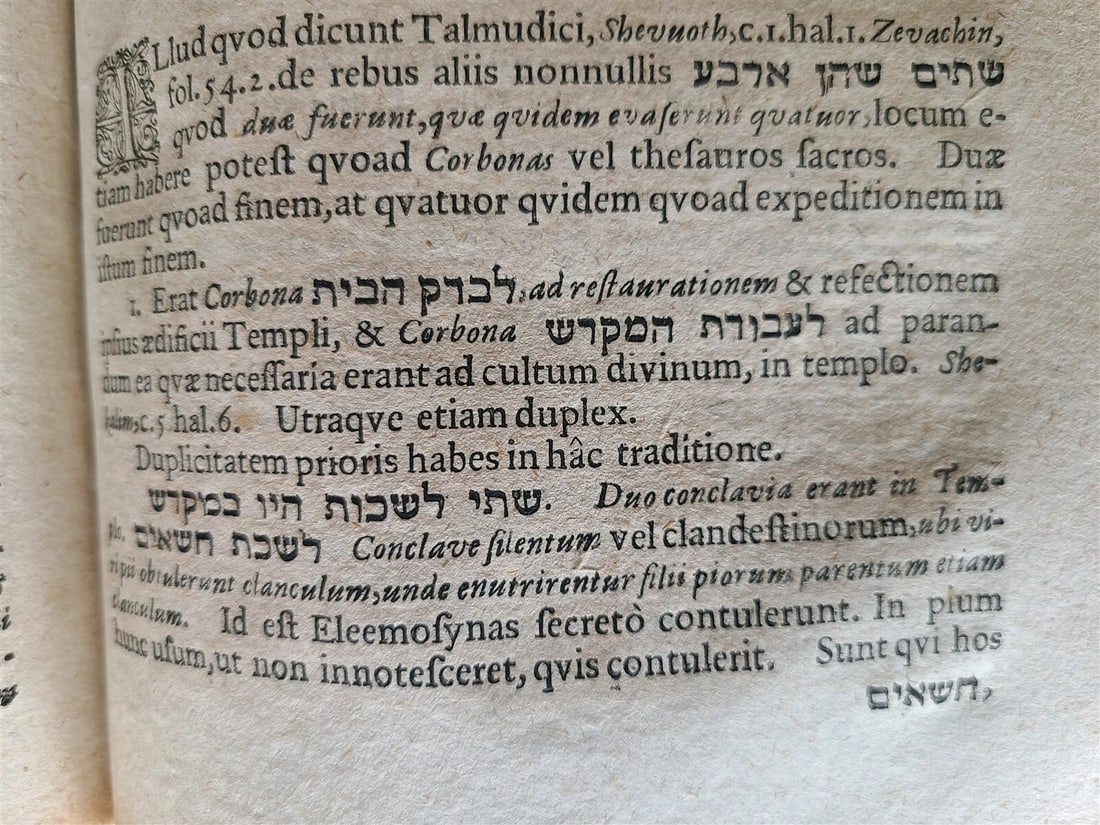 ILlud qvod dicunt Talmudici, Shevuoth, c.1. hal.1. Zevachin,
fol. 54. 2. de rebus aliis nonnullis שתים שהן ארבע
qvod duæ fuerunt, qvæ qvidem evaserunt qvatuor, locum e-
tiam habere potest qvoad Corbonas vel thesauros sacros. Duæ
fuerunt qvoad finem, at qvatuor qvidem qvoad expeditionem in
istum finem.
1. Erat Corbona לבדק הבית, ad restaurationem & refectionem
ipsius ædificii Templi, & Corbona לעבודת המקדש ad paran-
dum ea qvæ necessaria erant ad cultum divinum, in templo. She-
kalim, c. 5 hal. 6. Utraqve etiam duplex.
Duplicitatem prioris habes in hâc traditione.
שתי לשכות היו במקדש. Duo conclavia erant in Tem-
plo, לשכת חשאים Conclave silentum vel clandestinorum, ubi vi-
ri pii obtulerunt clanculum, unde enutrirentur filii piorum parentum etiam
clanculum. Id est Eleemosynas secretò contulerunt. In pium
hunc usum, ut non innotesceret, qvis contulerit. Sunt qvi hos
חשאים,